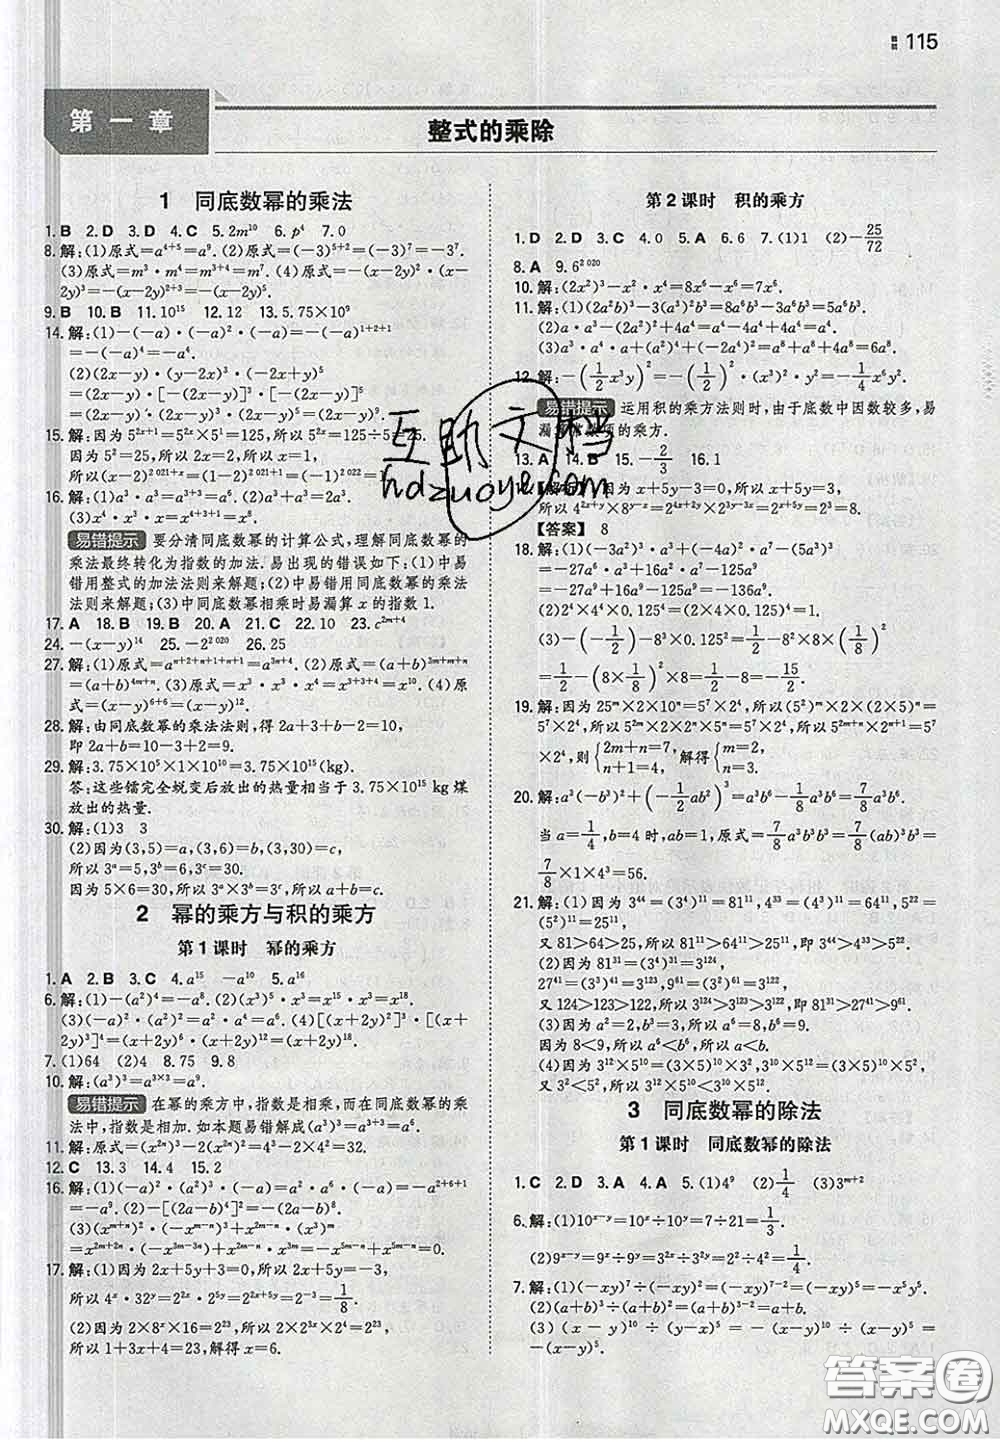 115
第一章
整式的乘除
1 同底数幂的乘法
1.B 2.D 3.D 4.C 5.2m¹⁰ 6.p⁴ 7.0
8.解:(1)原式=a⁴⁺⁵=a⁹. (2)原式=(-3)⁵⁺²=(-3)⁷=-3⁷.
(3)原式=m³·m⁴=m³⁺⁴=m⁷. (4)原式=-(x-2y)²·(x-
2y)³=-(x-2y)²⁺³=-(x-2y)⁵.
9.B 10.B 11.10¹⁵ 12.12 13.5.75×10⁹
14.解:(1)-(-a)·(-a)²·(-a)=-(-a)¹⁺²⁺¹
=-(-a)⁴=-a⁴.
(2)(2x-y)³·(y-2x)·(-2x+y)⁵
=(2x-y)³·[-(2x-y)]·(2x-y)⁵
=-(2x-y)⁹.
15.解:因为5²ˣ⁺¹=5²ˣ×5¹=125,所以5²ˣ=125÷5=25.
因为5²=25,所以2x=2,所以x=1,
所以(x-2)²⁰²¹⁺ˣ=(1-2)²⁰²¹⁺¹=(-1)²⁰²²=1.
16.解:(1)a³·a³=a³⁺³=a⁶. (2)a³+a³=2a³.
(3)x⁴·x³·x=x⁴⁺³⁺¹=x⁸.
易错提示 要分清同底数幂的计算公式,理解同底数幂的
乘法最终转化为指数的加法.易出现的错误如下:(1)中易
错用整式的加法法则来解题;(2)中易错用同底数幂的乘法
法则来解题;(3)中同底数幂相乘时易漏算x的指数1.
17.A 18.B 19.B 20.A 21.C 22.10 23.c²ᵐ⁺⁴
24.-(x-y)¹⁴ 25.-2²⁰²⁰ 26.25
27.解:(1)原式=aⁿ⁺²⁺ⁿ⁺¹⁺ⁿ⁺¹=a³ⁿ⁺⁴. (2)原式=(a+b)³ᵐ⁺ᵐ⁺ⁿ
=(a+b)⁴ᵐ⁺ⁿ. (3)原式=x³·x³·x⁴=x³⁺³⁺⁴=x¹⁰. (4)原
式=(x-y)⁶⁺⁶=(x-y)¹².
28.解:由同底数幂的乘法法则,得2a+3+b-2=10,
即2a+b=10-3+2=9.
29.解:3.75×10⁵×1×10¹⁰=3.75×10¹⁵(kg).
答:这些镭完全蜕变后放出的热量相当于3.75×10¹⁵kg煤
放出的热量.
30.解:(1)3 3
(2)因为(3,5)=a,(3,6)=b,(3,30)=c,
所以3ᵃ=5,3ᵇ=6,3ᶜ=30.
因为5×6=30,所以3ᵃ×3ᵇ=3ᶜ,所以a+b=c.
2 幂的乘方与积的乘方
第1课时 幂的乘方
1.A 2.B 3.C 4.a¹⁵ -a¹⁰ 5.a¹⁶
6.解:(1)-(a²)⁴=-a⁸. (2)(x³)⁵·x³=x¹⁵·x³=x¹⁸.
(3)(-a)²·(a²)²=a²·a⁴=a⁶. (4)[(x+2y)²]³·[(x+
2y)³]⁴=(x+2y)⁶·(x+2y)¹²=(x+2y)¹⁸.
7.(1)64 (2)4 8.75 9.8
10.解:(a³)³=a³ˣ³=a⁹.
易错提示 在幂的乘方中,指数是相乘,而在同底数幂的乘
法中,指数是相加.如本题易错解成(a³)³=a³⁺³=a⁶.
11.解:原式=(x²ⁿ)³-2(x²ⁿ)²=4³-2×4²=32.
12.C 13.3 14.4 15.2
16.解:(1)(-a)²·(a²)³·(-a)=a²·a⁶·(-a)=-a²⁺⁶⁺¹
=-a⁹. (2)-[(2a-b)⁴]²=-(2a-b)⁸.
(3)(xᵐ⁺ⁿ)²·(-xᵐ⁻ⁿ)³+x²ᵐ⁻ⁿ·(x³)ᵐ
=x²ᵐ⁺²ⁿ·(-x³ᵐ⁻³ⁿ)+x²ᵐ⁻ⁿ·x³ᵐ=-x⁵ᵐ⁻ⁿ+x⁵ᵐ⁻ⁿ=0.
17.解:(1)因为2x+5y+3=0,所以2x+5y=-3,
所以4ˣ·32ʸ=2²ˣ·2⁵ʸ=2²ˣ⁺⁵ʸ=2⁻³=1/8.
(2)因为2×8ˣ×16=2²³,所以2×2³ˣ×2⁴=2²³,
所以1+3x+4=23,解得x=6.
第2课时 积的乘方
1.D 2.D 3.C 4.0 5.A 6.6 7.(1)1 (2)-25/72
8.A 9.6²⁰²⁰
10.解:(2x²)³-x²·x⁴=8x⁶-x⁶=7x⁶.
11.解:(1)(2a²b)³-3(a³)²b³=8a⁶b³-3a⁶b³=5a⁶b³.
(2)a·a³-(2a²)²+4a⁴=a⁴-4a⁴+4a⁴=a⁴.
(3)a³·a⁴·a+(a²)⁴+(-2a⁴)²=a⁸+a⁸+4a⁸=6a⁸.
12.解:-(1/2x³y)²=-(1/2)²·(x³)²·y²=-1/4x⁶y².
易错提示 运用积的乘方法则时,由于底数中因数较多,易
漏算常数项的乘方.
13.A 14.B 15.-2/3 16.1
17.【解析】因为x+5y-3=0,所以x+5y=3,
所以4²ˣ⁺ʸ×8ʸ⁻ˣ=2⁴ˣ⁺²ʸ×2³ʸ⁻³ˣ=2ˣ⁺⁵ʸ=2³=8.
【答案】 8
18.解:(1)(-3a³)²·a³+(-4a)²·a⁷-(5a³)³
=-27a⁹·a³+16a²·a⁷-125a⁹
=-27a⁹+16a⁹-125a⁹=-136a⁹.
(2)2⁴×4⁴×0.125⁴=(2×4×0.125)⁴=1⁴=1.
(3)-(-1/2)-8³×0.125²=1/2-8²×8×(1/8)²
=1/2-(8×1/8)²×8=1/2-8=-15/2.
19.解:因为25ᵐ×2×10ⁿ=5⁷×2⁴,所以5²ᵐ×2×(2×5)ⁿ
=5⁷×2⁴,所以5²ᵐ×2×2ⁿ×5ⁿ=5⁷×2⁴,所以5²ᵐ⁺ⁿ×2ⁿ⁺¹=5⁷
×2⁴,则{2m+n=7, n+1=4,解得{m=2, n=3.
20.解:a³(-b³)²+(-1/2ab²)³=a³b⁶-1/8a³b⁶=7/8a³b⁶.
当a=1/4,b=4时,ab=1,原式=7/8a³b³b³=7/8(ab)³b³=
7/8×1×4³=56.
21.解:(1)因为3⁴⁴=(3⁴)¹¹=81¹¹,4³³=(4³)¹¹=64¹¹,5²²=
(5²)¹¹=25¹¹,
又81>64>25,所以81¹¹>64¹¹>25¹¹,所以3⁴⁴>4³³>5²².
(2)因为81³¹=(3⁴)³¹=3¹²⁴,
27⁴¹=(3³)⁴¹=3¹²³,9⁶¹=(3²)⁶¹=3¹²²,
又124>123>122,所以3¹²⁴>3¹²³>3¹²²,即81³¹>27⁴¹>9⁶¹.
(3)因为a²=2,b³=3,所以a⁶=8,b⁶=9.
因为8<9,所以a⁶<b⁶,所以a<b.
(4)因为3¹²×5¹⁰=(3×5)¹⁰×3²,3¹⁰×5¹²=(3×5)¹⁰×5²,又
3²<5²,所以3¹²×5¹⁰<3¹⁰×5¹².
3 同底数幂的除法
第1课时 同底数幂的除法
1.C 2.D 3.A 4.A 5.(1)4⁹ (2)1/4 (3)3ᵐ⁺²
6.解:(1)10ˣ⁻ʸ=10ˣ÷10ʸ=7÷21=1/3.
(2)9ˣ⁻ʸ=9ˣ÷9ʸ=3²ˣ÷3²ʸ=2²÷4²=1/4.
7.解:(1)(-xy)⁷÷(-xy)²=(-xy)⁷⁻²=(-xy)⁵=-x⁵y⁵.
(2)(a+b)³÷(a+b)²=(a+b)³⁻²=a+b.
(3)(x-y)¹⁰÷(y-x)⁵=(x-y)¹⁰÷[-(x-y)⁵]
=-(x-y)⁵.
互助文档
hdzuoye.com
答案圈
MXQE.COM